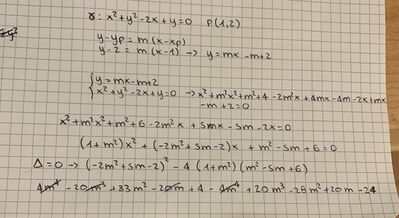 γ: x²+y²-2x+y=0 P(1,2)
y-yp = m(x-xp)
y-2 = m(x-1) → y=mx-m+2
{y=mx-m+2
x²+y²-2x+y=0 → x²+m²x²+m²+4-2m²x+4mx-4m-2x+mx
-m+2=0
x²+m²x²+m²+6-2m²x+5mx-5m-2x=0
(1+m²)x²+(-2m²+5m-2)x+m²-5m+6=0
Δ=0 → (-2m²+5m-2)²-4(1+m²)(m²-5m+6)
4m⁴-20m³+33m²-20m+4-4m⁴+20m³-28m²+20m-24